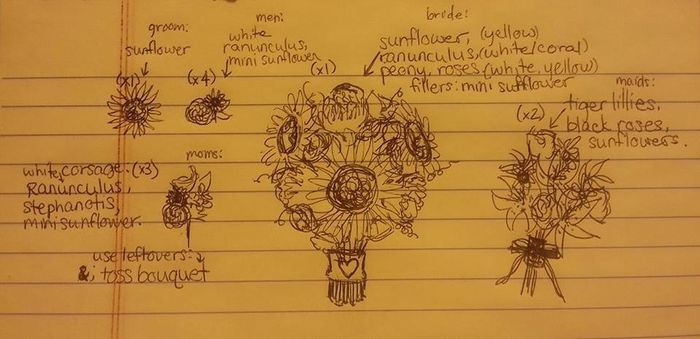 groom:
sunflower
(x1)
men:
white
ranunculus,
mini sunflower
(x4)
bride:
sunflower, (yellow)
ranunculus, (white/coral)
peony, roses (white, yellow)
fillers: mini sunflower
(x1)
maids:
tiger lillies,
black roses,
sunflowers.
(x2)
moms:
white corsage: (x3)
Ranunculus,
stephanotis,
mini sunflower.
use leftovers:
&; toss bouquet